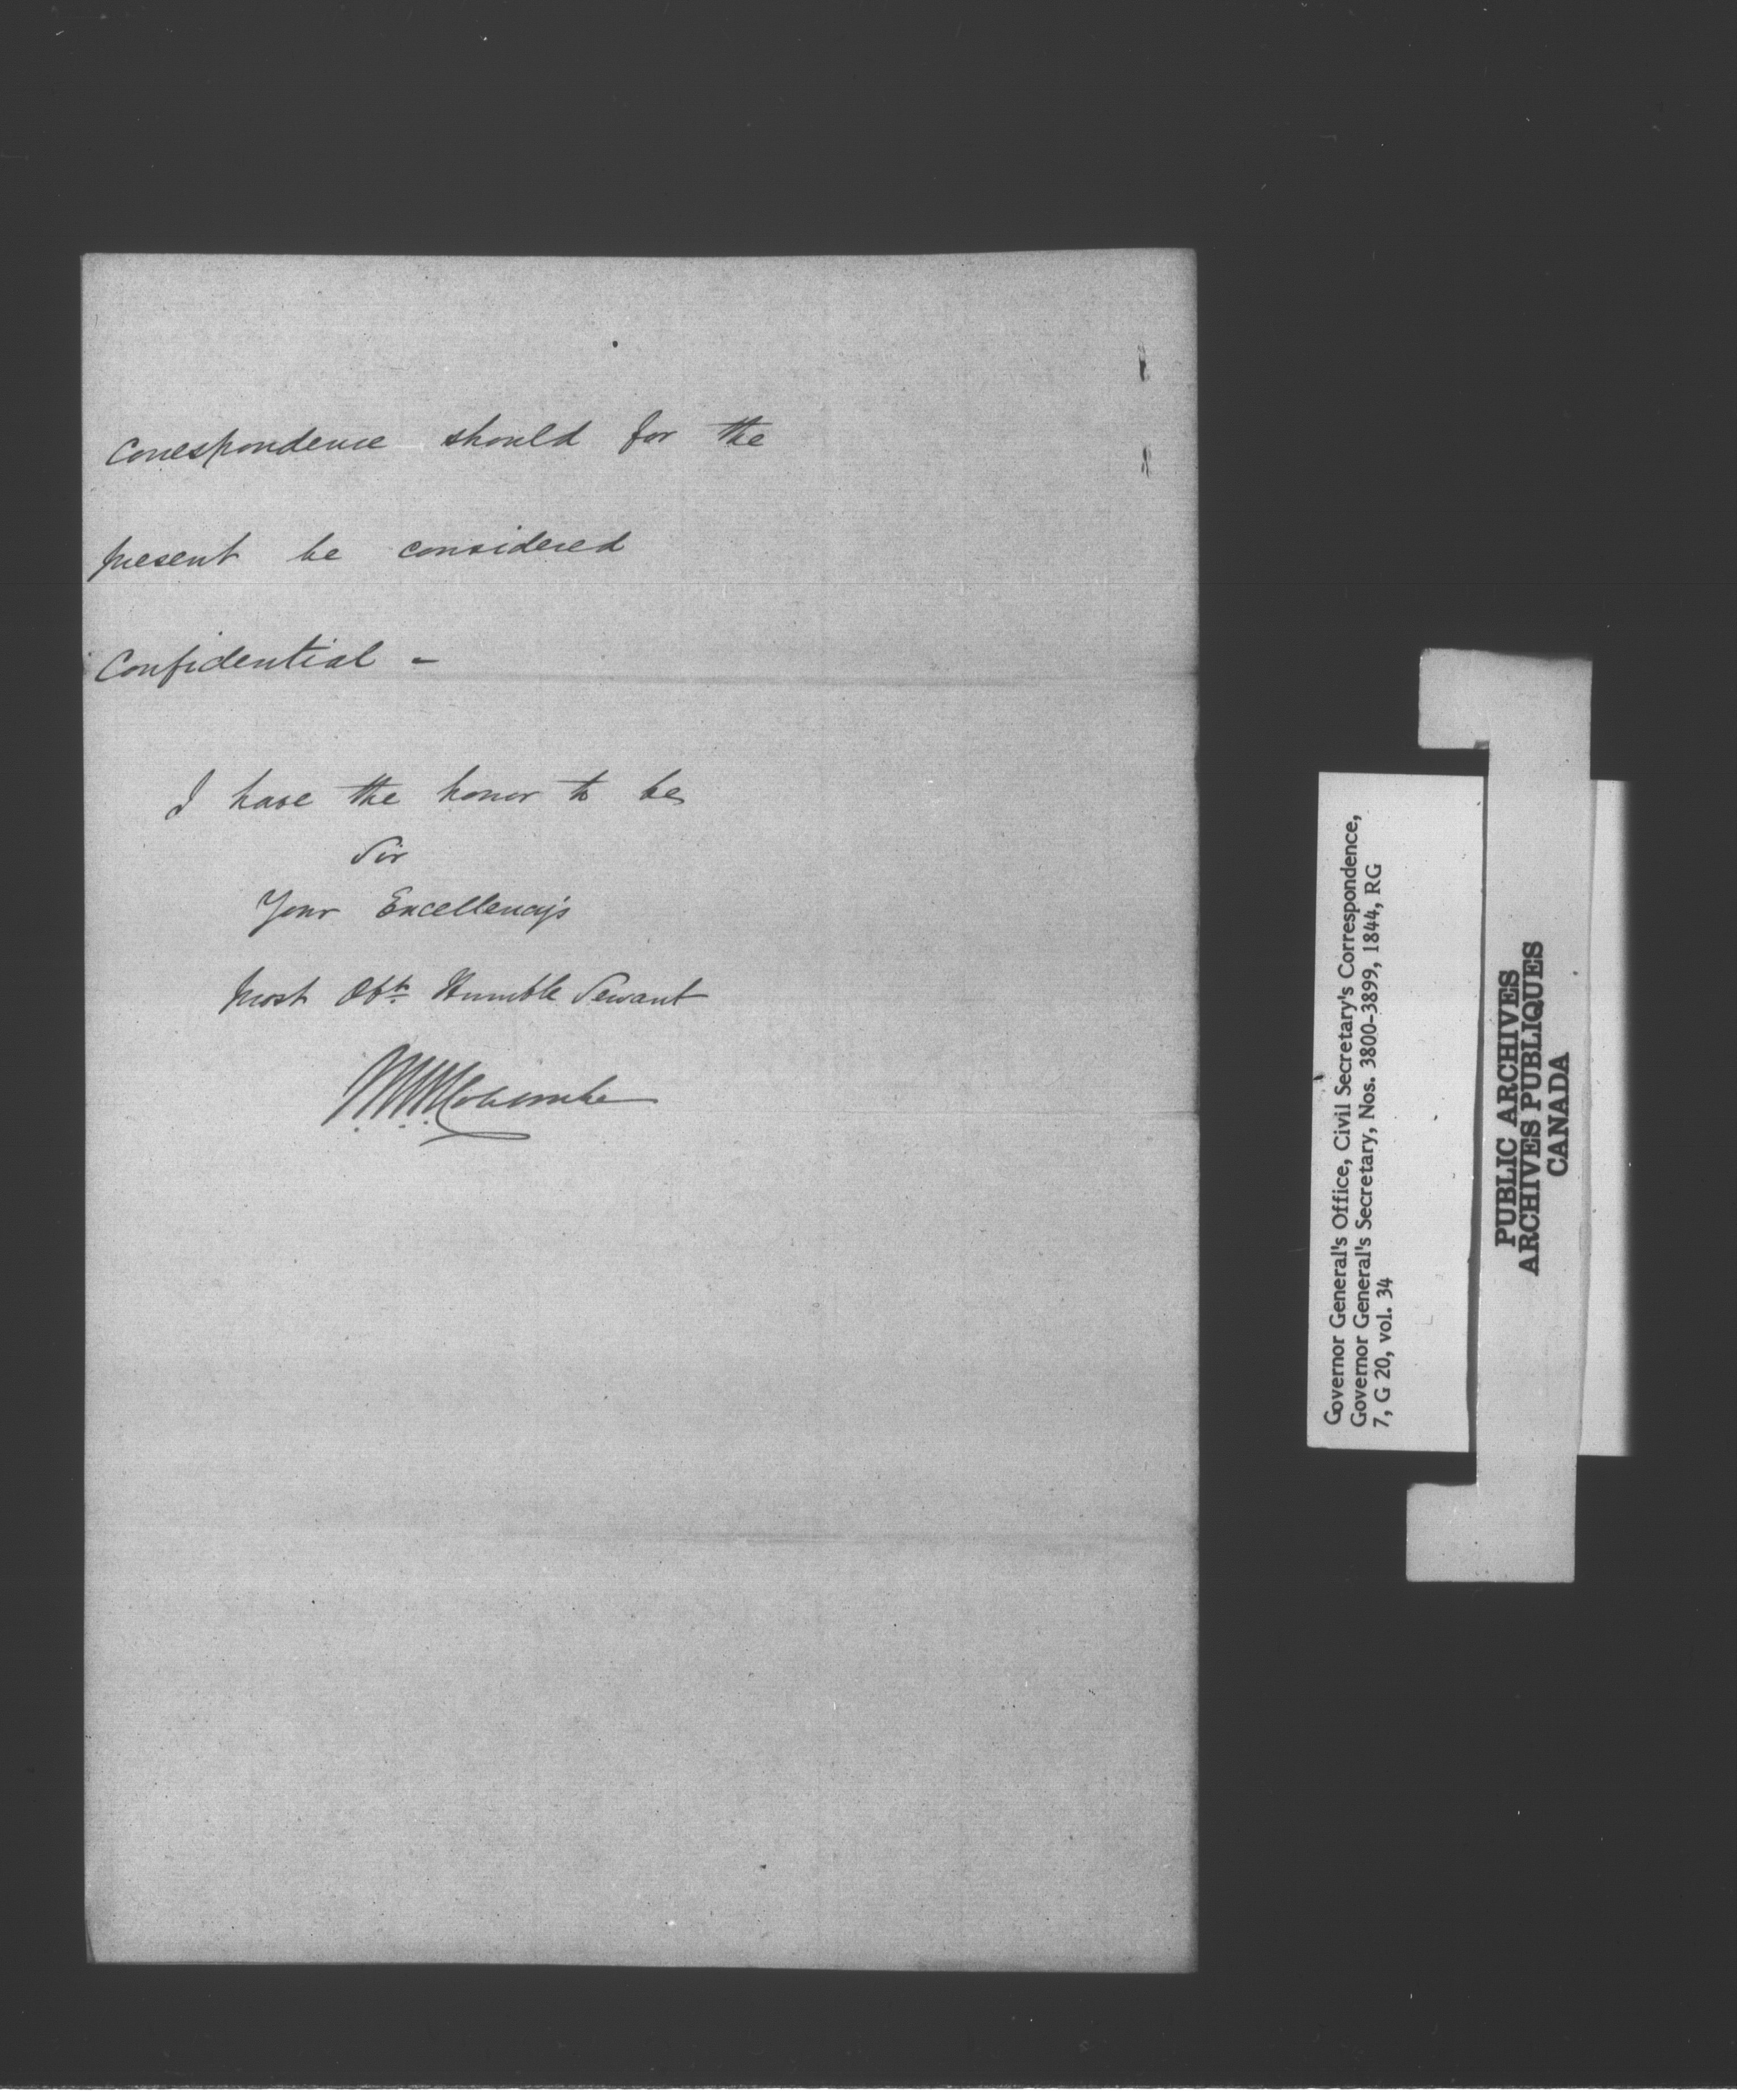 Correspondence should for the
present be considered
Confidential -
I have the honor to be
Sir
Your Excellency's
Most Obt Humble Servant
Governor General's Office, Civil Secretary's Correspondence,
Governor General's Secretary, Nos. 3800-3899, 1844, RG
7, G 20, vol. 34
PUBLIC ARCHIVES
ARCHIVES PUBLIQUES
CANADA